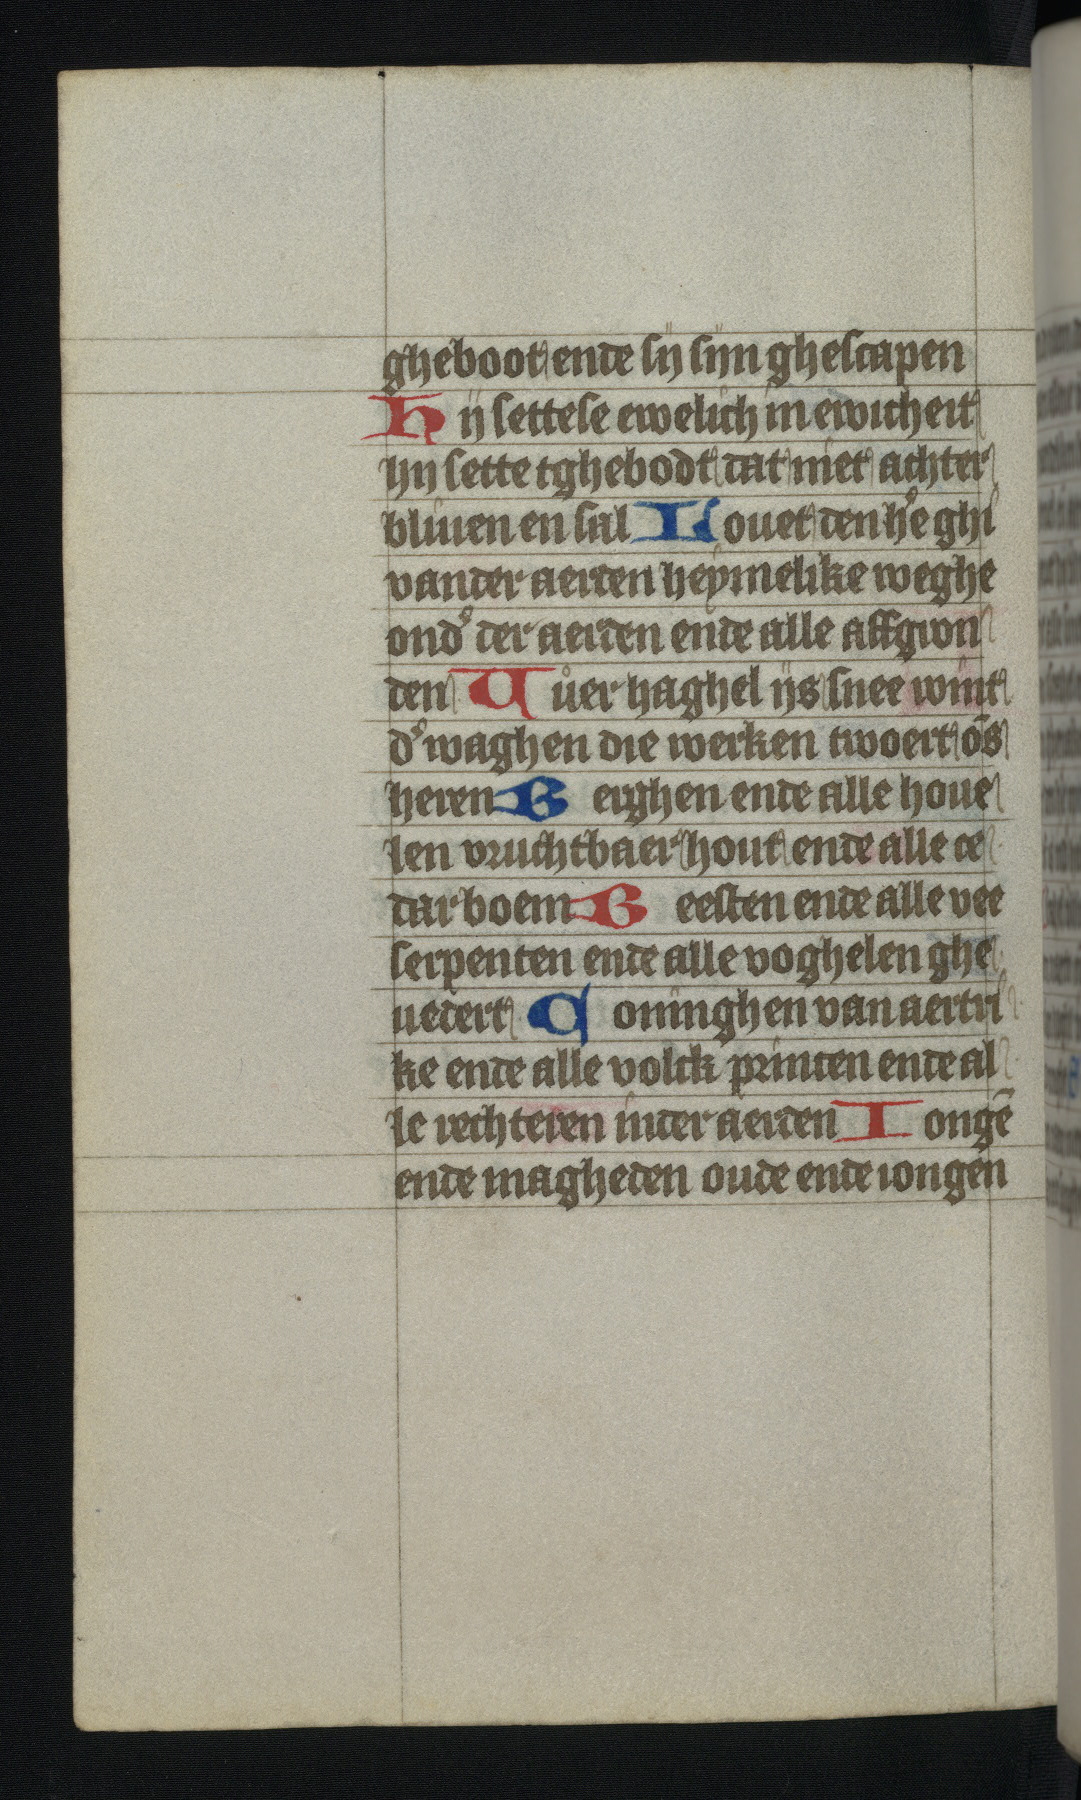 gheboot ende sij sijn ghescapen
Hij settese ewelich in ewicheit
hij sette tghebodt dat niet achter
bliuen en sal Louet den h̊e ghi
vander aerden heymelike weghe
ond̾ der aerden ende alle affgron
den Vůer haghel ijs snee wint
d̾ waghen die werken twoert o̅s
heren Berghen ende alle houe
len vruchtbaer hout ende alle ce
darboem Beesten ende alle vee
serpenten ende alle voghelen ghe
uedert Coninghen van aertri
ke ende alle volck princen ende al
le rechteren inder aerden Iongē
ende magheden oude ende iongen